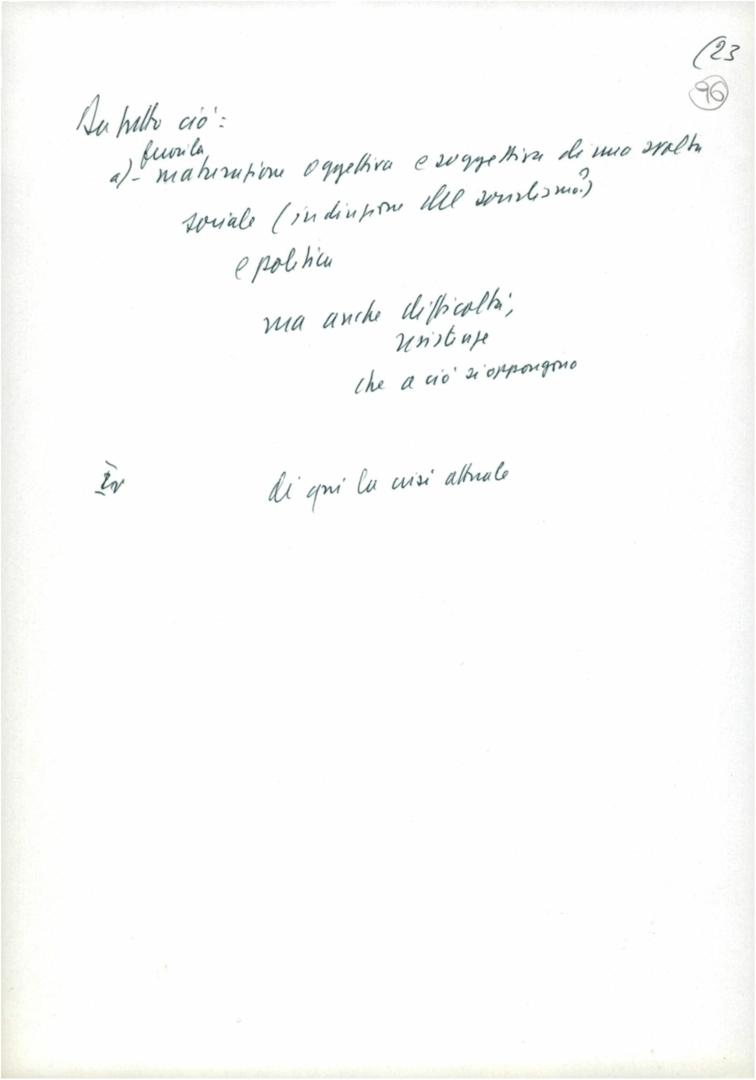 (23
96
Da tutto ciò:
a) - maturazione oggettiva e soggettiva di una svolta
sociale (in direzione del socialismo?)
e politica
ma anche difficoltà,
resistenze
che a ciò si oppongono
di qui la crisi attuale